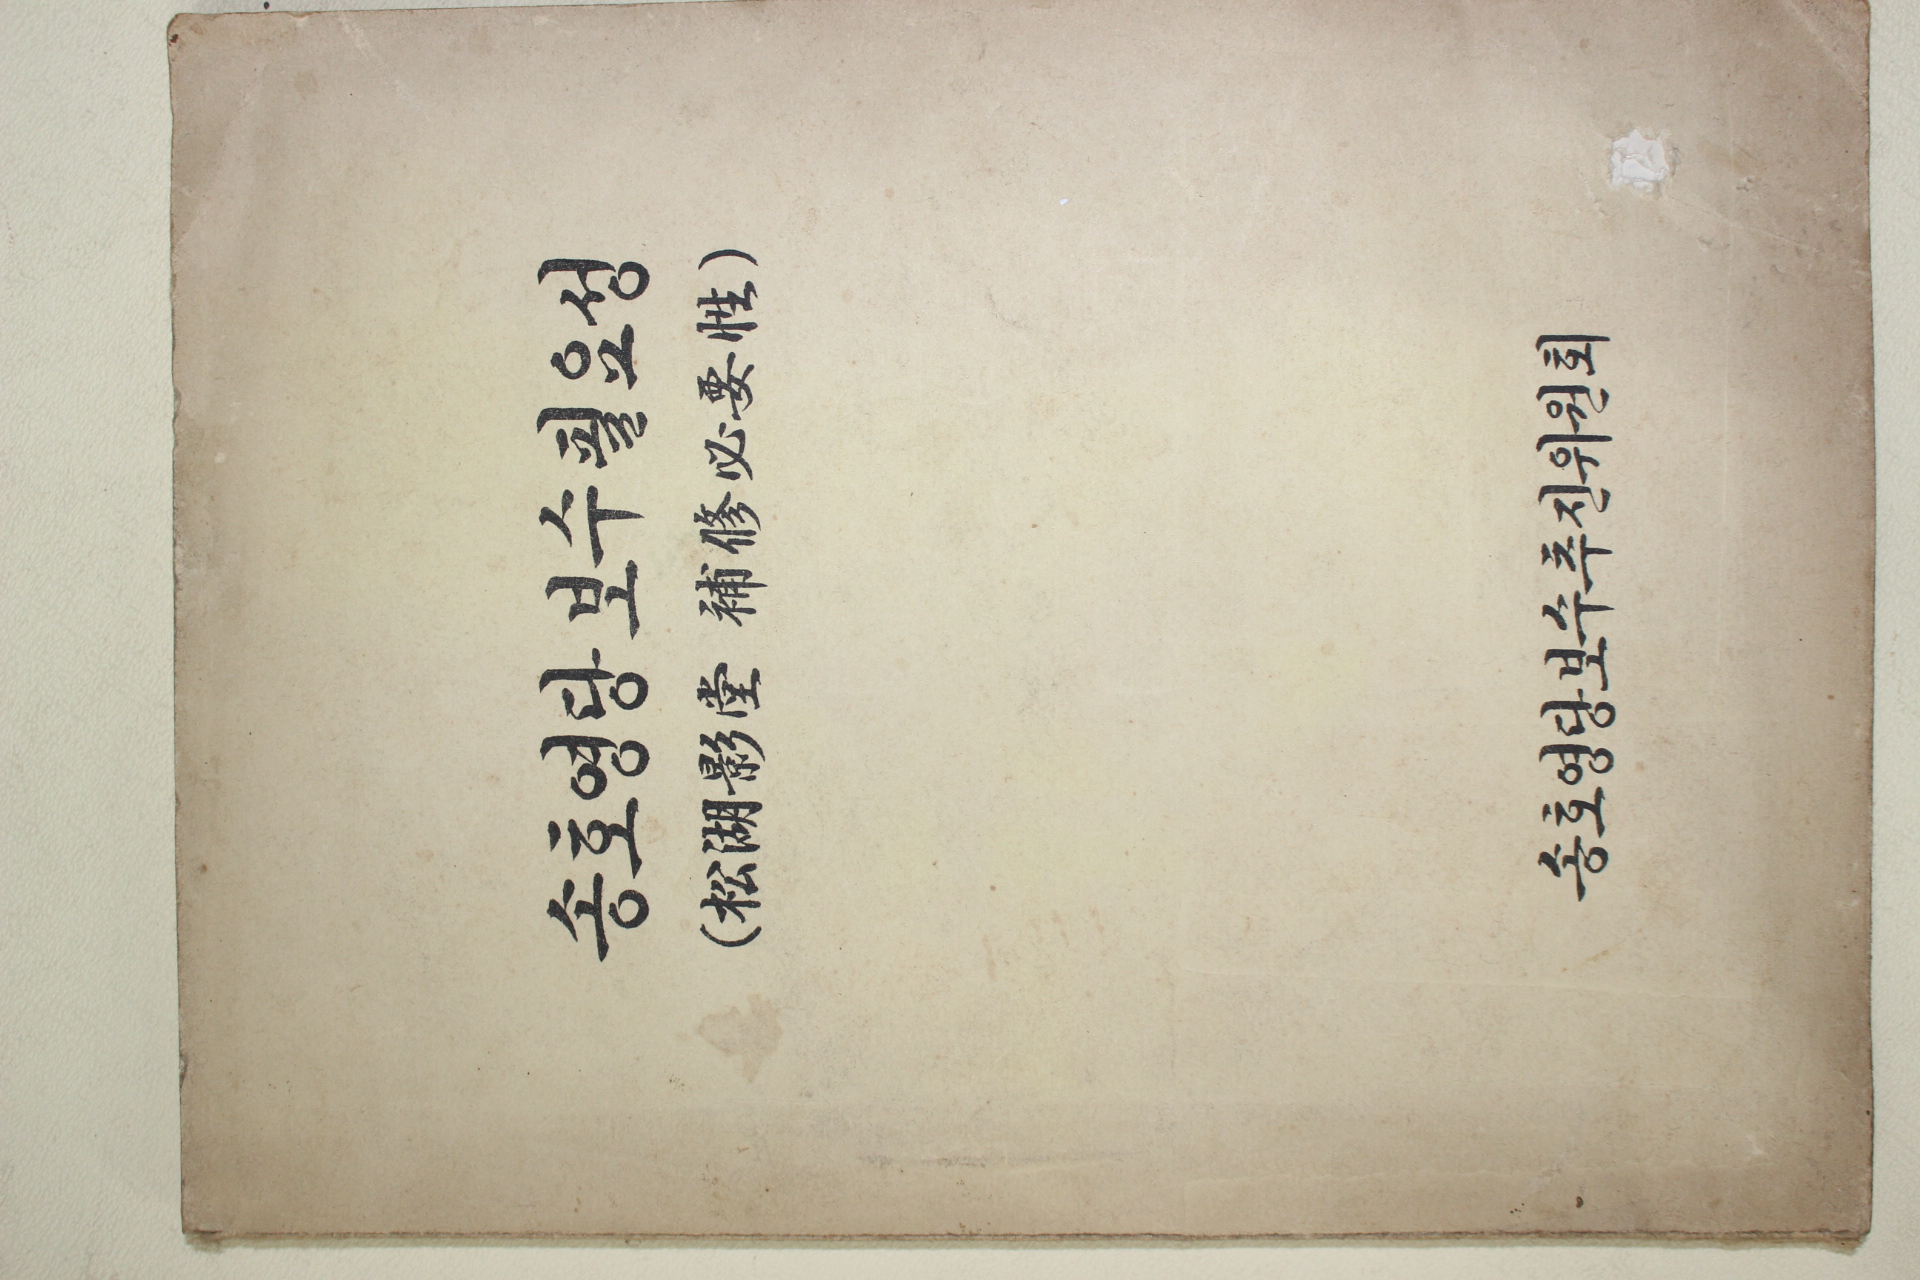 송호영당 보수필요성
(松湖影堂 補修必要性)
송호영당보수추진위원회